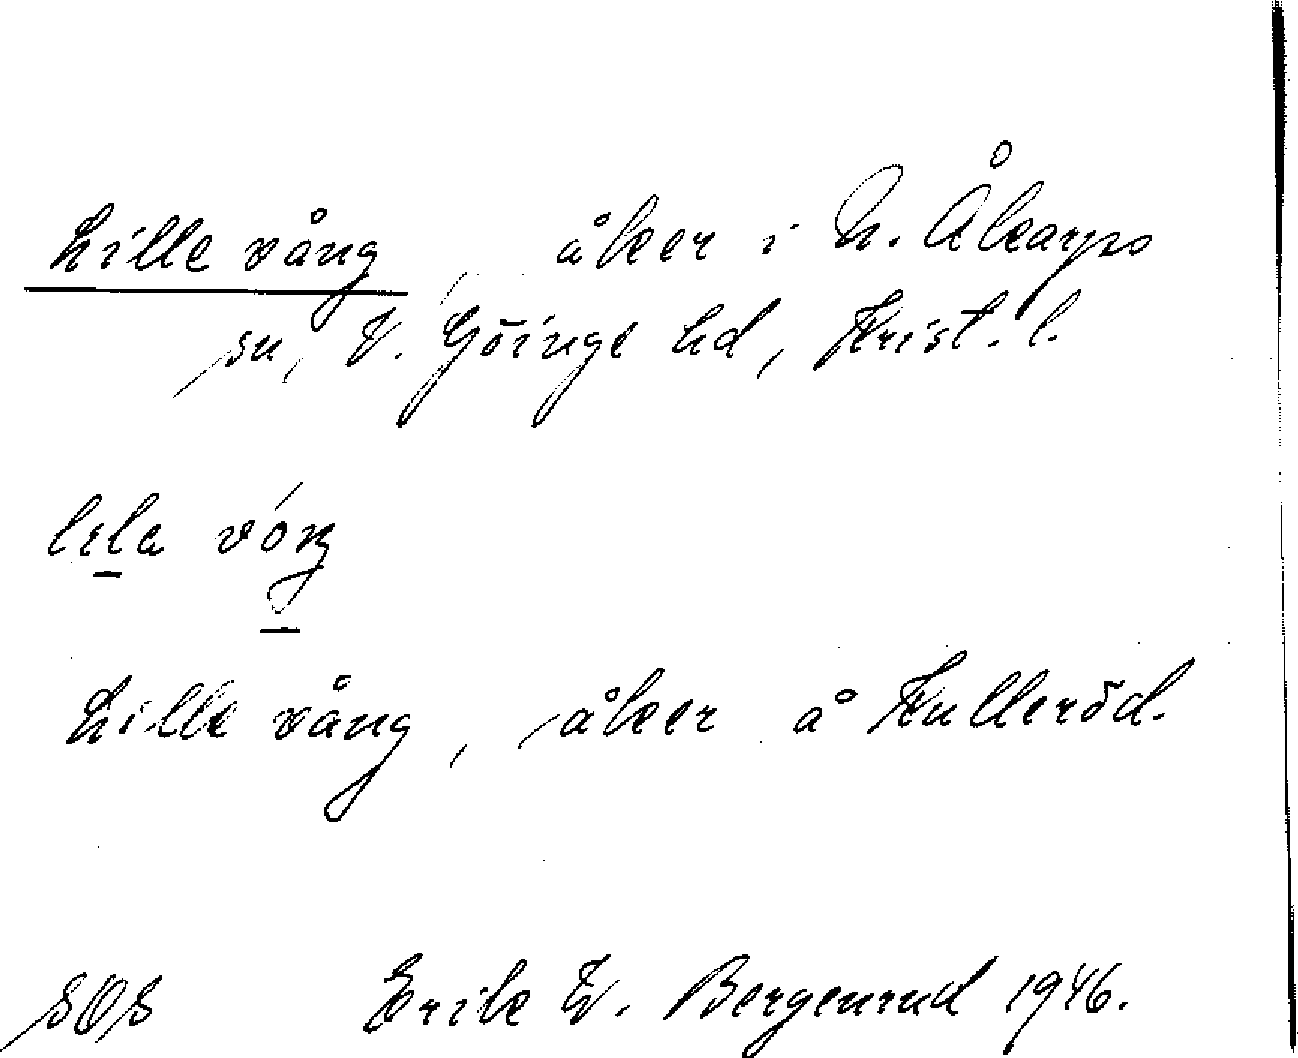 Lille vång, åker i N. Åkarps
sn, V. Göinge hd, Krist. l.
lela vóŋ
Lille vång, åker å Kulleröd.
SOS Erik W. Bergenrud 1946.